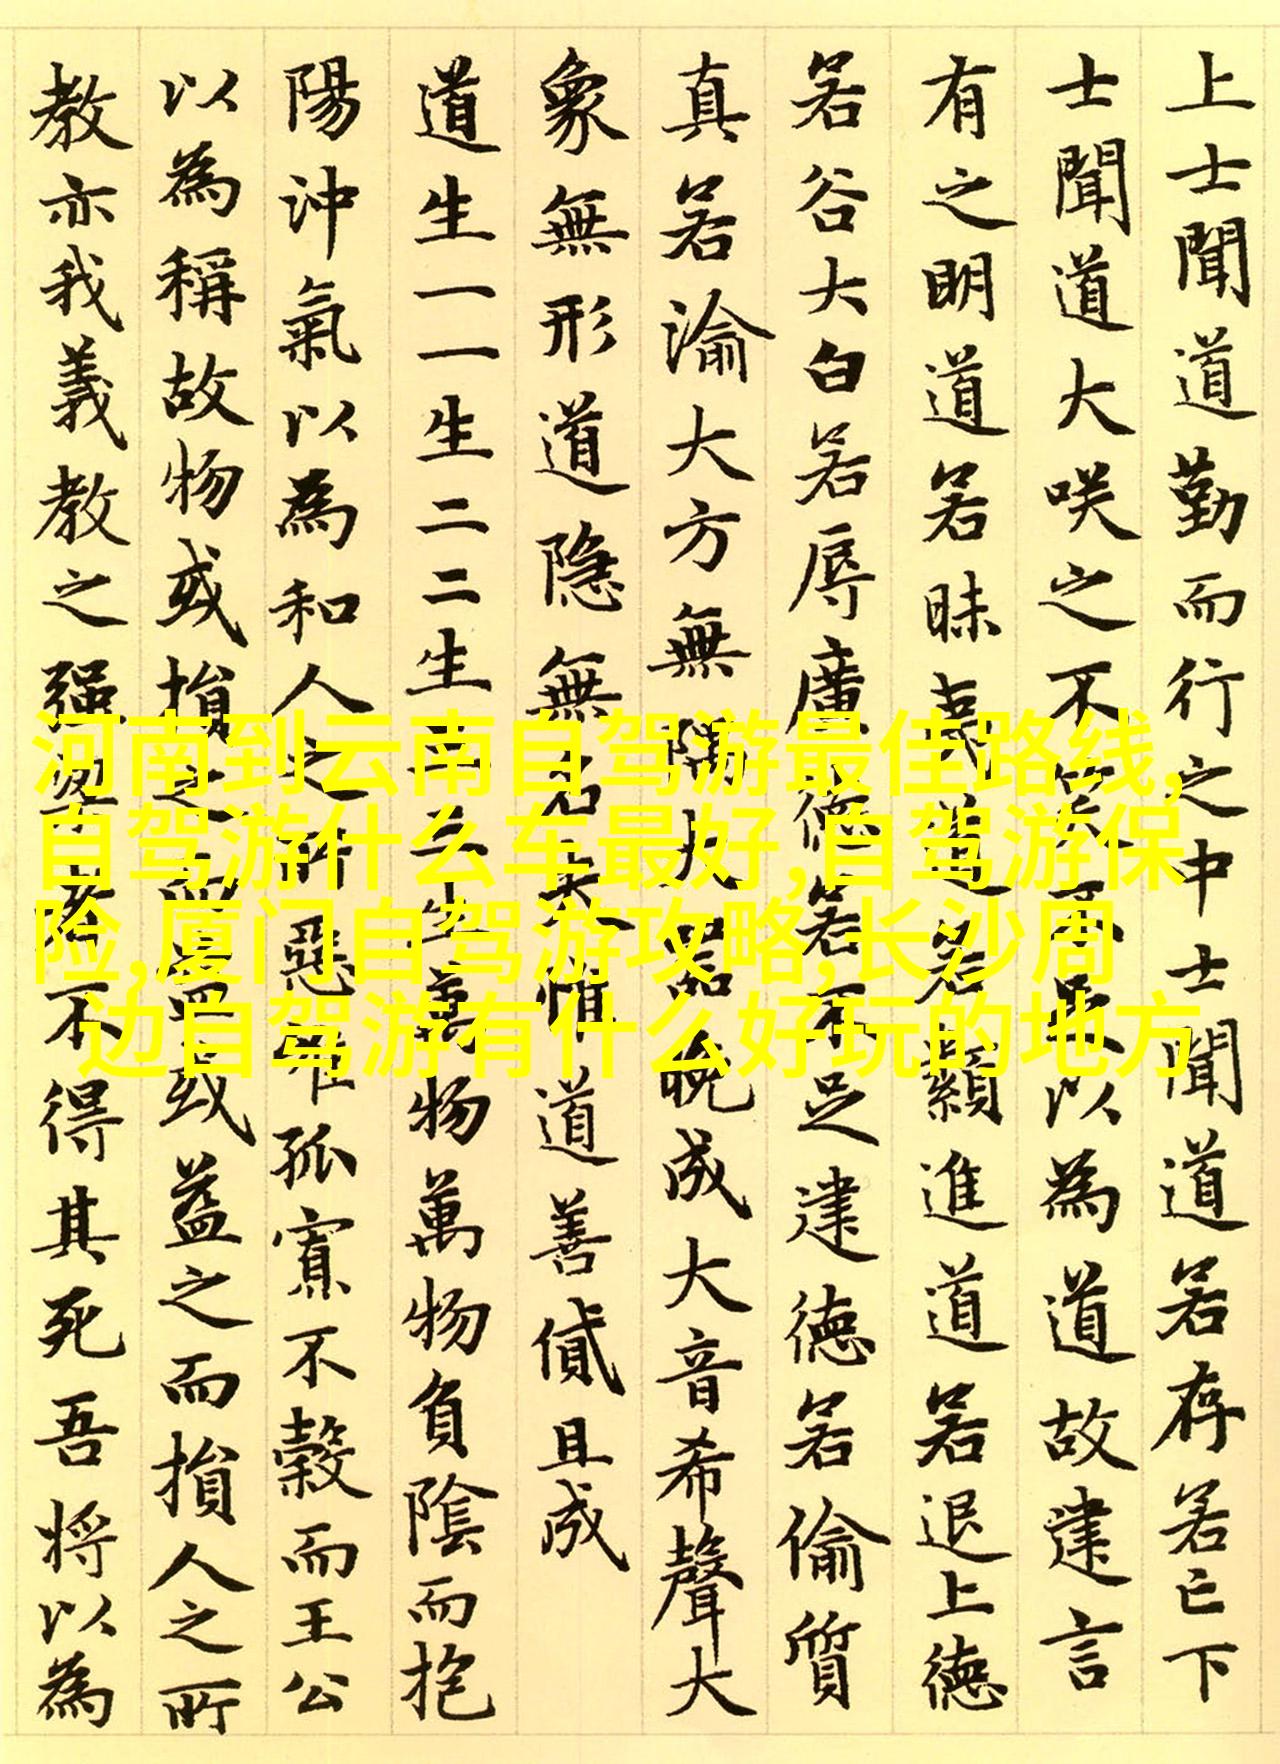 上士聞道勤而行之中士聞道若存若亡下
士聞道大咲之不笑不足以為道故建言
有之明道若昧夷道若纇進道若退上德
若谷大白若辱廣德若不足建德若偷質
真若渝大方無隅大器晚成大音希聲大
象無形道隱無名夫惟道善貸且成
道生一一生二二生三三生萬物萬物負陰而抱
陽沖氣以為和人之所惡惟孤寡不穀而王公
以為稱故物或損之而益或益之而損人之所
教亦我義教之强梁者不得其死吾将以為
河南到云南自驾游最佳路线,
自驾游什么车最好,自驾游保
险,厦门自驾游攻略,长沙周
边自驾游有什么好玩的地方